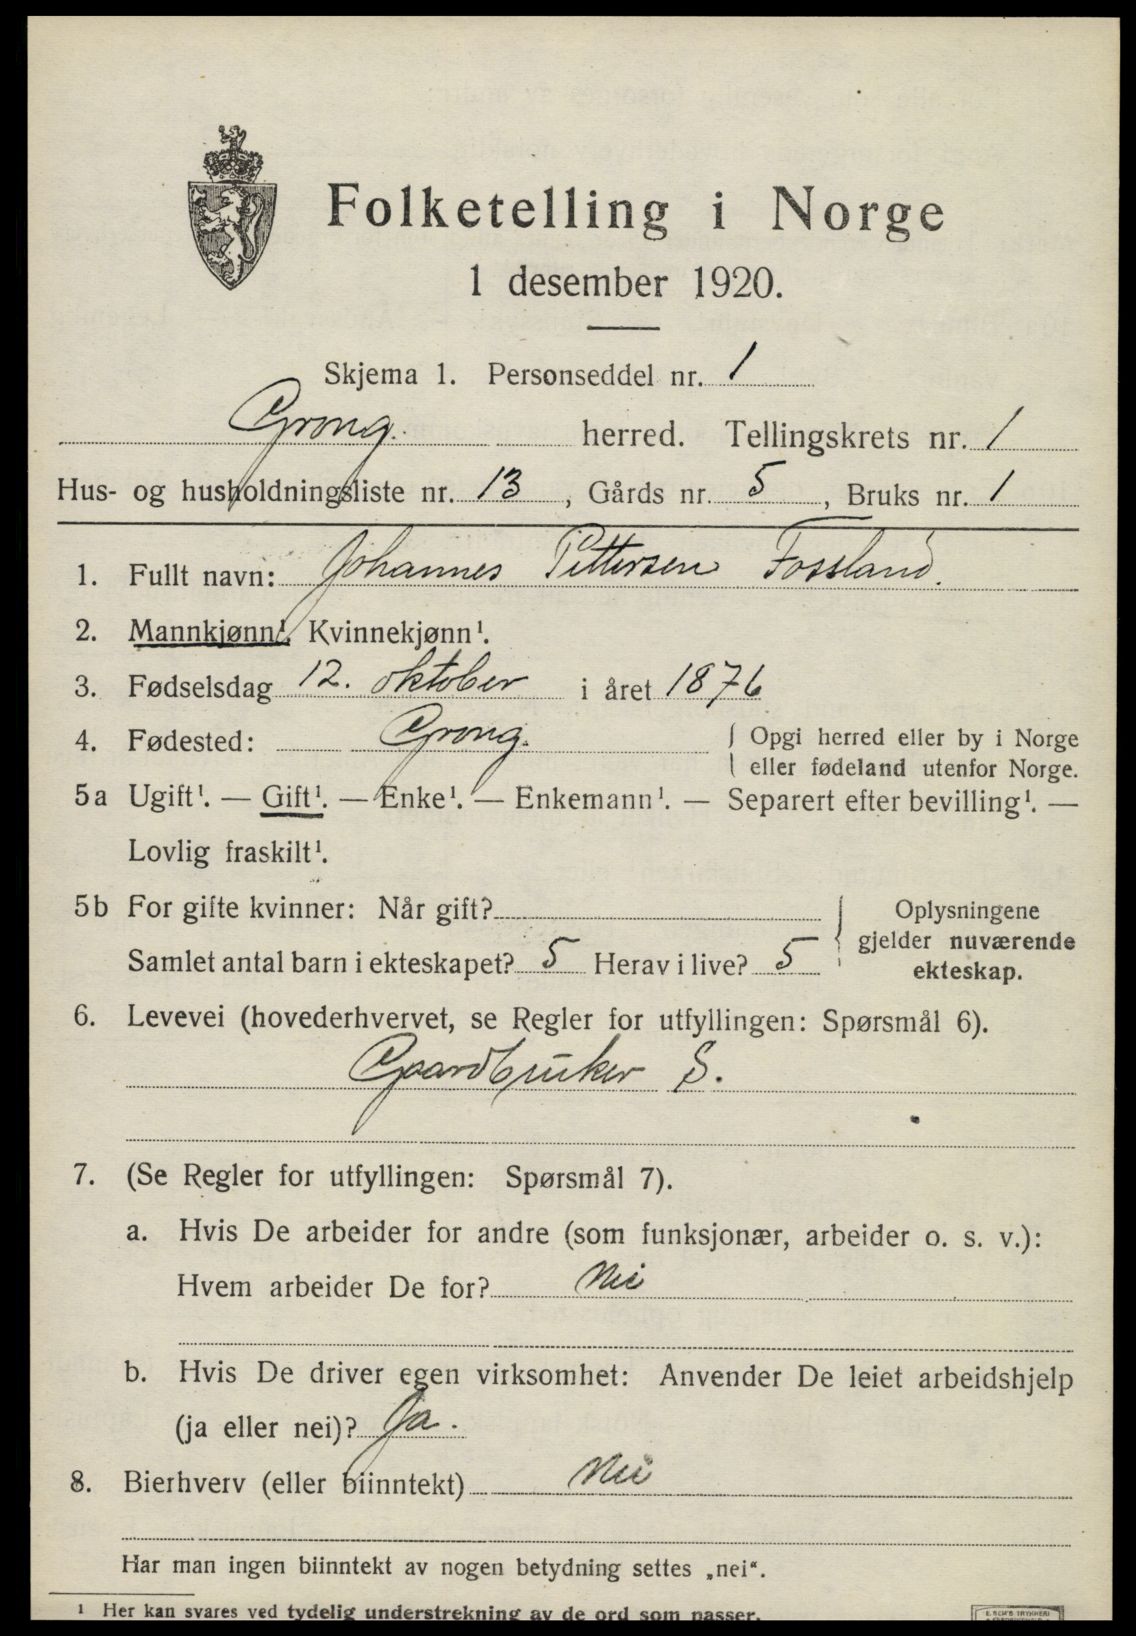 Folketelling i Norge
1 desember 1920.
Skjema 1. Personseddel nr. 1
Grong. herred. Tellingskrets nr. 1
Hus- og husholdningsliste nr. 13, Gårds nr. 5, Bruks nr. 1
1. Fullt navn: Johannes Pettersen Fossland.
2. Mannkjønn¹. Kvinnekjønn¹.
3. Fødselsdag 12. oktober i året 1876
4. Fødested: Grong. { Opgi herred eller by i Norge
eller fødeland utenfor Norge.
5a Ugift¹. — Gift¹. — Enke¹. — Enkemann¹. — Separert efter bevilling¹. —
Lovlig fraskilt¹.
5b For gifte kvinner: Når gift? { Oplysningene
gjelder nuværende
Samlet antal barn i ekteskapet? 5 Herav i live? 5 ekteskap.
6. Levevei (hovederhvervet, se Regler for utfyllingen: Spørsmål 6).
Gaardbruker S.
7. (Se Regler for utfyllingen: Spørsmål 7).
a. Hvis De arbeider for andre (som funksjonær, arbeider o. s. v.):
Hvem arbeider De for? Nei
b. Hvis De driver egen virksomhet: Anvender De leiet arbeidshjelp
(ja eller nei)? Ja.
8. Bierhverv (eller biinntekt) Nei
Har man ingen biinntekt av nogen betydning settes „nei“.
¹ Her kan svares ved tydelig understrekning av de ord som passer.